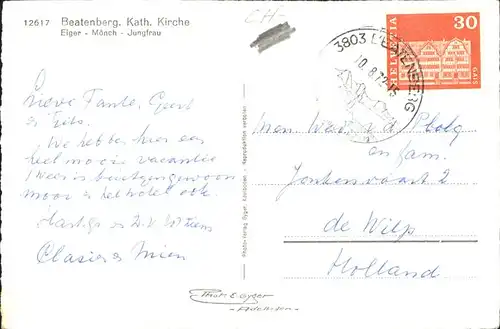 12617 Beatenberg. Kath. Kirche
Eiger - Mönch - Jungfrau
CH-
3803 BEATENBERG
10.8.72-15
HELVETIA
30
GAIS
Lieve Tante, Geert
We hebben hier een
heel mooie vacantie
't Weer is buitengewoon
mooi het hotel ook.
Hartgr.
Clasien
Men. Wed. v. d. Ploeg
en fam.
Jonkersvaart 2
de Wilp
Holland
Photo-Verlag Gyger, Adelboden - Reproduktion verboten
Phot. E. Gyger
- Adelboden -